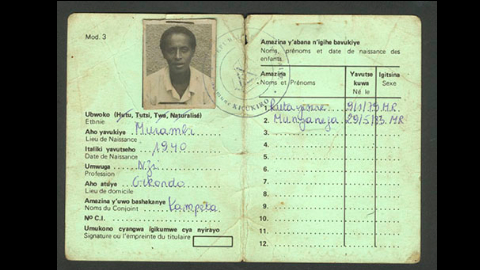 Mod. 3
Ubwoko (Hutu, Tutsi, Twa, Naturalisé)
Ethnie
Aho yavukiye Murambi
Lieu de Naissance
Italiki yavutseho 1940
Date de Naissance
Umwuga
Profession
Aho atuye Gikondo
Lieu de domicile
Amazina y'uwo bashakanye Kampeta
Noms du Conjoint
Nº C.I.
Umukono cyangwa igikumwe cya nyirayo
Signature ou l'empreinte du titulaire
Amazina y'abana n'igihe bavukiye
Noms, prénoms et date de naissance des enfants
Amazina
Noms et Prénoms
Yavutse kuwa
Né le
Igitsina
Sexe
1.
2. Munyaneza
3.
4.
5.
6.
7.
8.
9.
10.
11.
12.